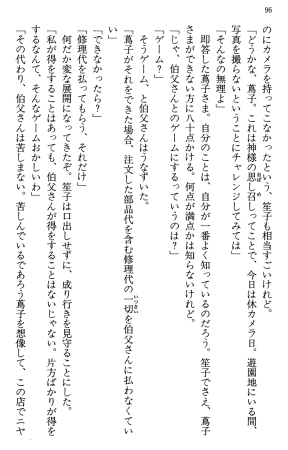 96
のにカメラを持ってこなかったという、笙子も相当すごいけれど。
「どうかな、蔦子。これは神様の思し召しってことで、今日は休カメラ日。遊園地にいる間、
写真を撮らないということにチャレンジしてみては」
「そんなの無理よ」
即答した蔦子さま。自分のことは、自分が一番よく知っているのだろう。笙子でさえ、蔦子
さまができない方に八十点かける。何点が満点かは知らないけれど。
「じゃ、伯父さんとのゲームにするっていうのは?」
「ゲーム?」
そうゲーム、と伯父さんはうなずいた。
「蔦子がそれをできた場合、注文した部品代を含む修理代の一切を伯父さんに払わなくてい
い」
「できなかったら?」
「修理代を払ってもらう、それだけ」
何だか変な展開になってきたぞ。笙子は口出しせずに、成り行きを見守ることにした。
「私が得をすることはあっても、伯父さんが得をすることはないじゃない。片方ばかりが得を
するなんて、そんなゲームおかしいわ」
「その代わり、伯父さんは苦しまない。苦しんでいるであろう蔦子を想像して、この店でニヤ